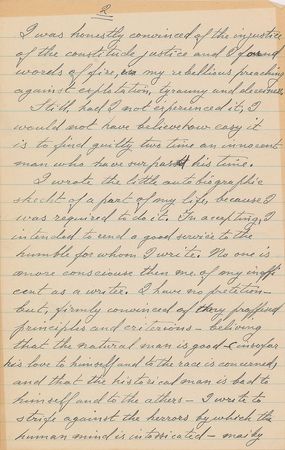 2
I was honestly convinced of the injustice
of the constitude justice and I found
words of fire, in my rebellious preaching
against exploitation, tyranny and
Still, had I not experienced it, I
would not have believe how easy it
is to find guilty two time an innocent
man who have surpasst his time.
I wrote the little autobiographic
skecht of a part of my life, because I
was required to do it. In accepting, I
intended to rend a good service to the
humble for whom I write. No one is
amore consciouse then me of my
cent as a writer. I have no pretetion–
but, firmly convinced of thery proffised
principles and criterions – beliving
that the natural man is good – (insofar
his love to himself and to the race is concerned,
and that the historical man is bad to
himself and to the athers – I wrote to
strife against the herrors by which the
human mind is intossicated –